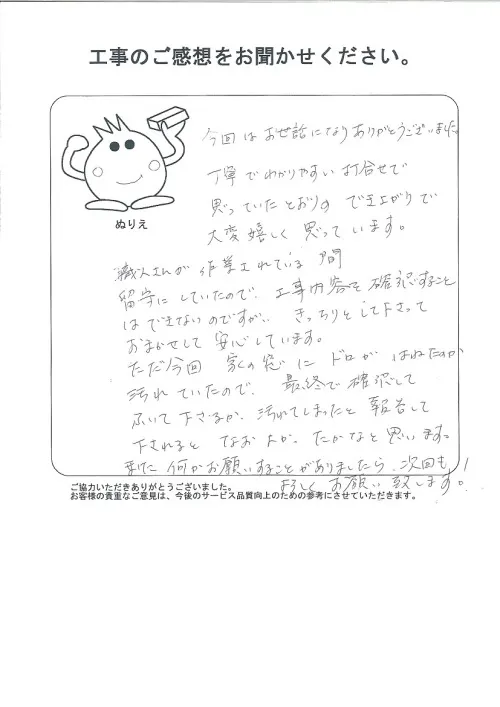 工事のご感想をお聞かせください。
今回はお世話になりありがとうございました。
丁寧でわかりやすい打合せで
思っていたとおりの でき上がりで
大変嬉しく 思っています。
ぬりえ
職人さんが 作業されている 間
留守にしていたので、工事内容を確認することは
できないのですが、きっちりとして下さって
おまかせして 安心しています。
ただ今回 家の窓に ドロが はねたのか
汚れていたので、最終で確認して
ふいて下さるか、汚れてしまったと 報告して
下されると なおよかったかなと 思います。
また 何かお願いすることがありましたら、次回も
よろしく お願い致します。
ご協力いただきありがとうございました。
お客様の貴重なご意見は、今後のサービス品質向上のための参考にさせていただきます。